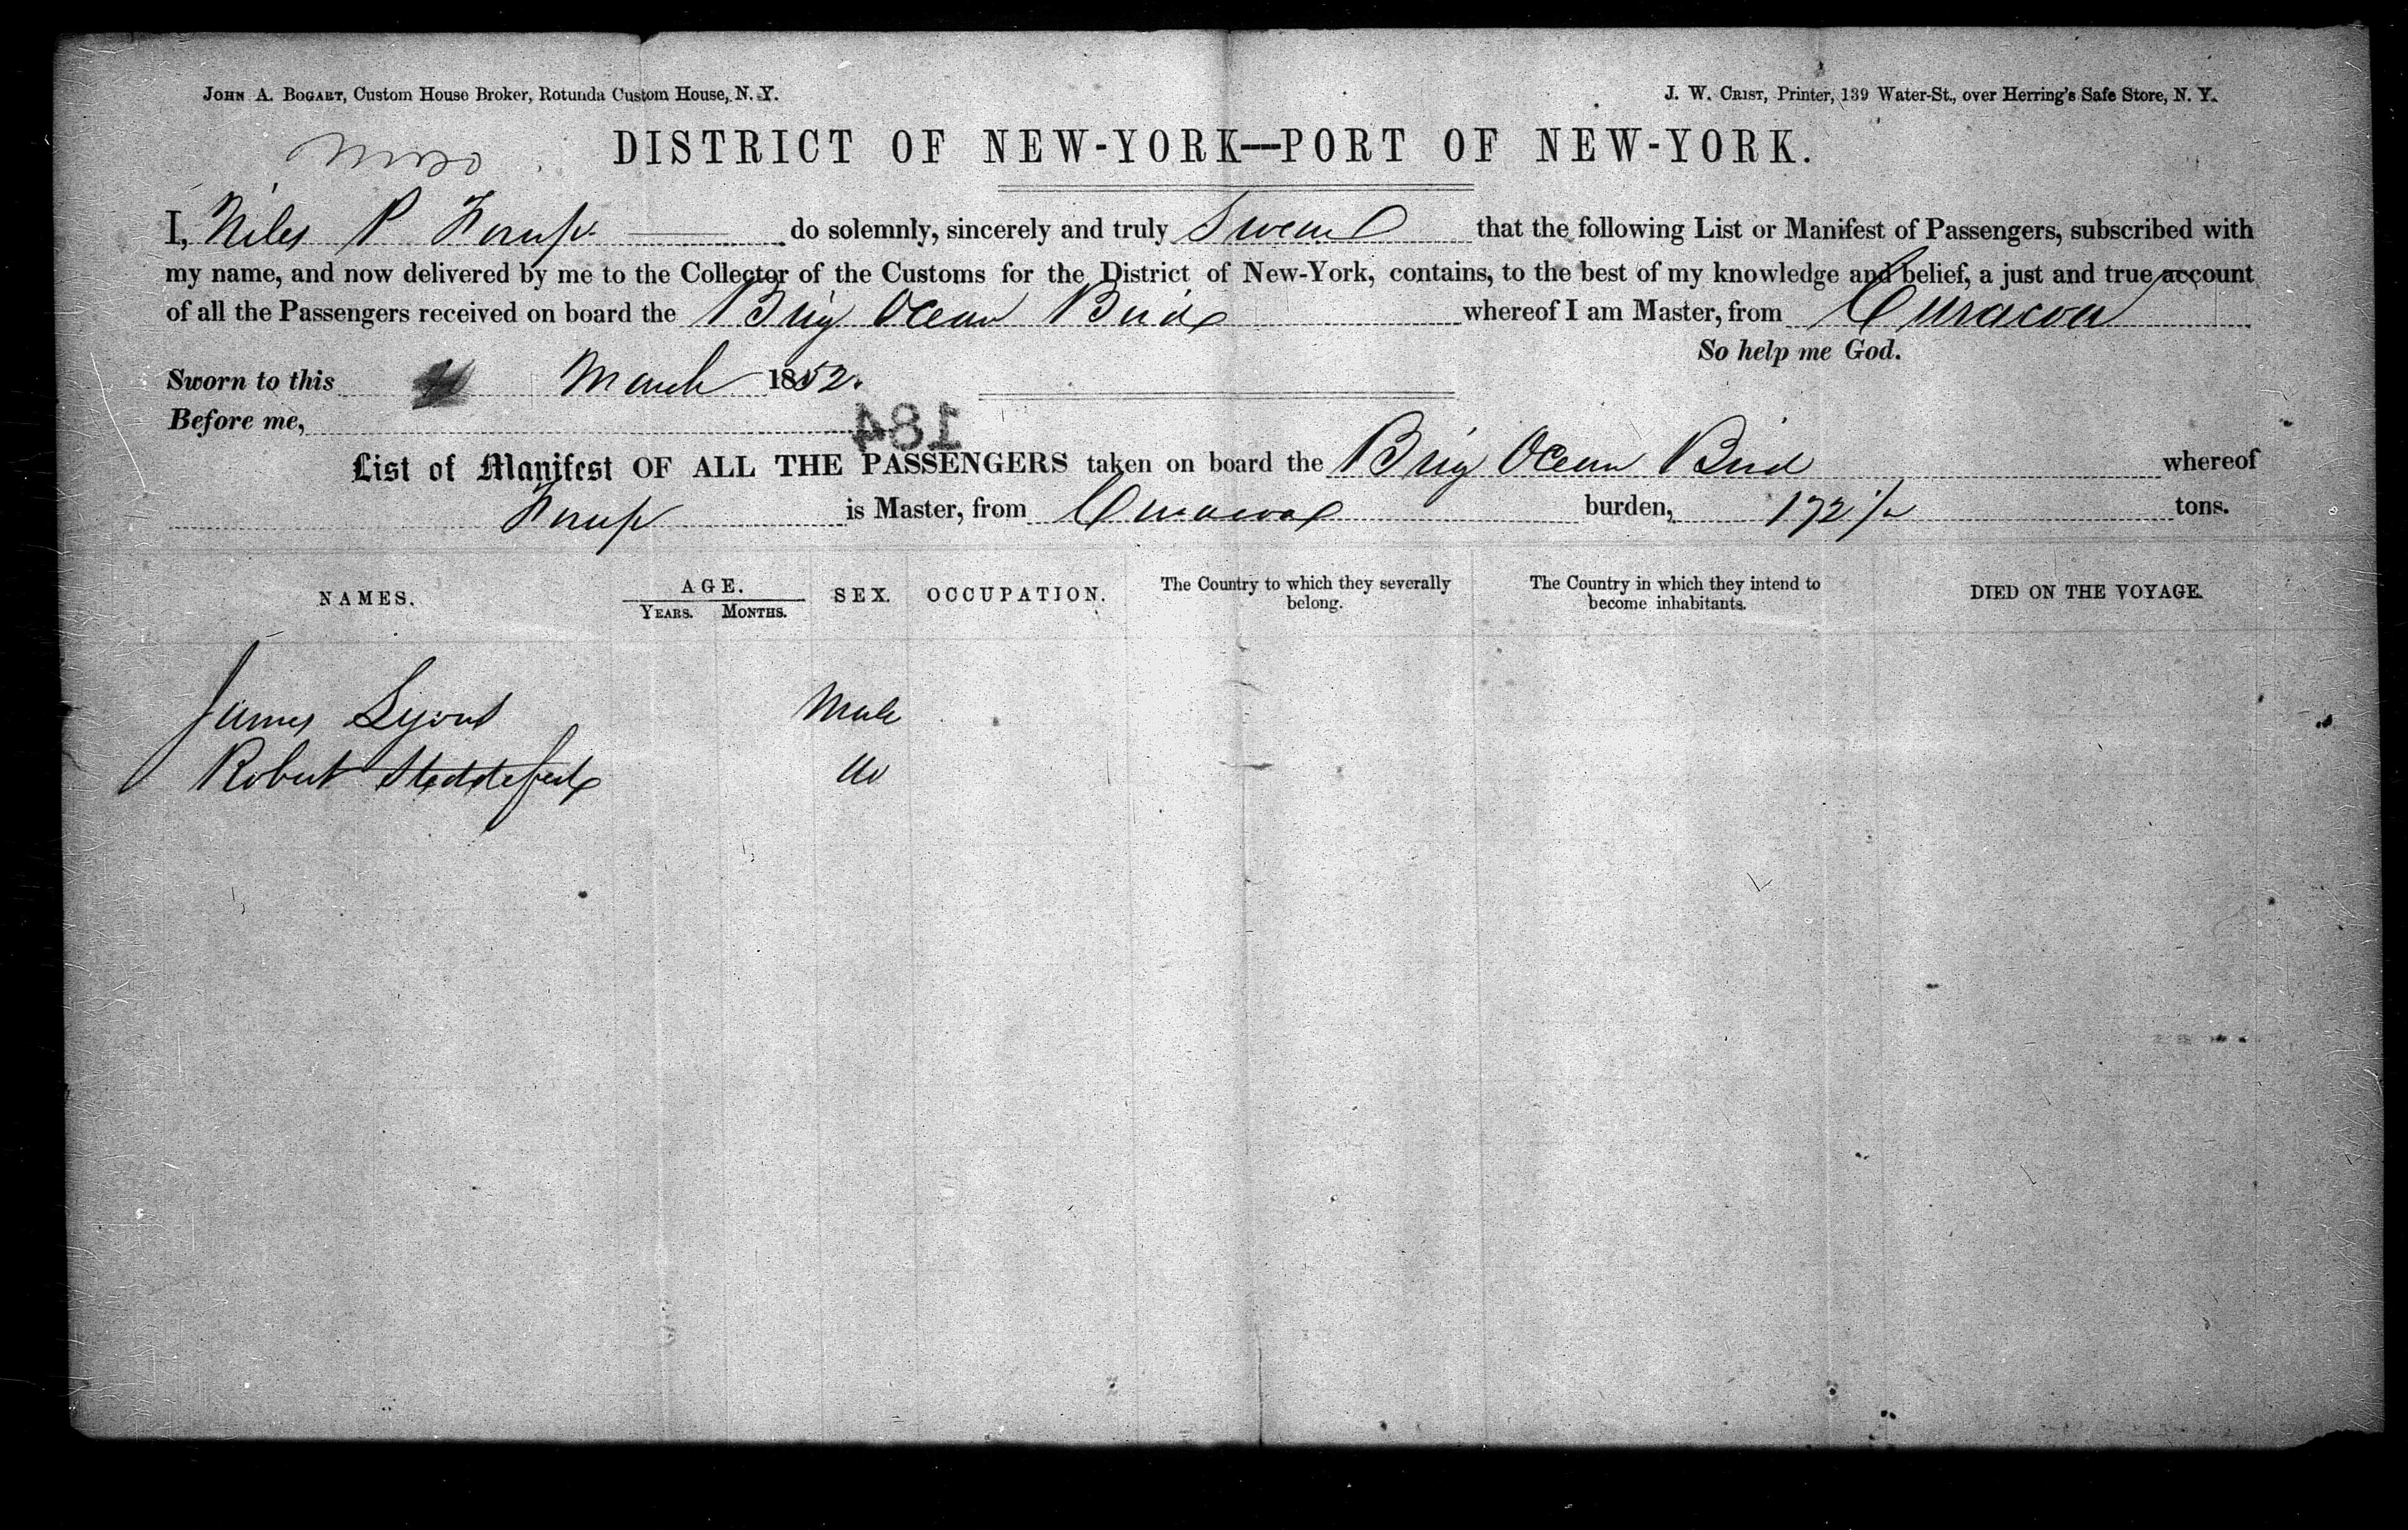 JOHN A. BOGART, Custom House Broker, Rotunda Custom House, N. Y.
J. W. CRIST, Printer, 139 Water-St., over Herring's Safe Store, N. Y.
DISTRICT OF NEW-YORK—PORT OF NEW-YORK.
I, Niles P do solemnly, sincerely and truly Swear that the following List or Manifest of Passengers, subscribed with
my name, and now delivered by me to the Collector of the Customs for the District of New-York, contains, to the best of my knowledge and belief, a just and true account
of all the Passengers received on board the Brig Ocean Bird whereof I am Master, from Curacoa
So help me God.
Sworn to this March 1852.
Before me,
184
List of Manifest OF ALL THE PASSENGERS taken on board the Brig Ocean Bird whereof
is Master, from Curacoa burden, 172 tons.
NAMES. AGE. SEX. OCCUPATION. The Country to which they severally belong. The Country in which they intend to become inhabitants. DIED ON THE VOYAGE.
YEARS. MONTHS.
James Lyons Male
Robert do